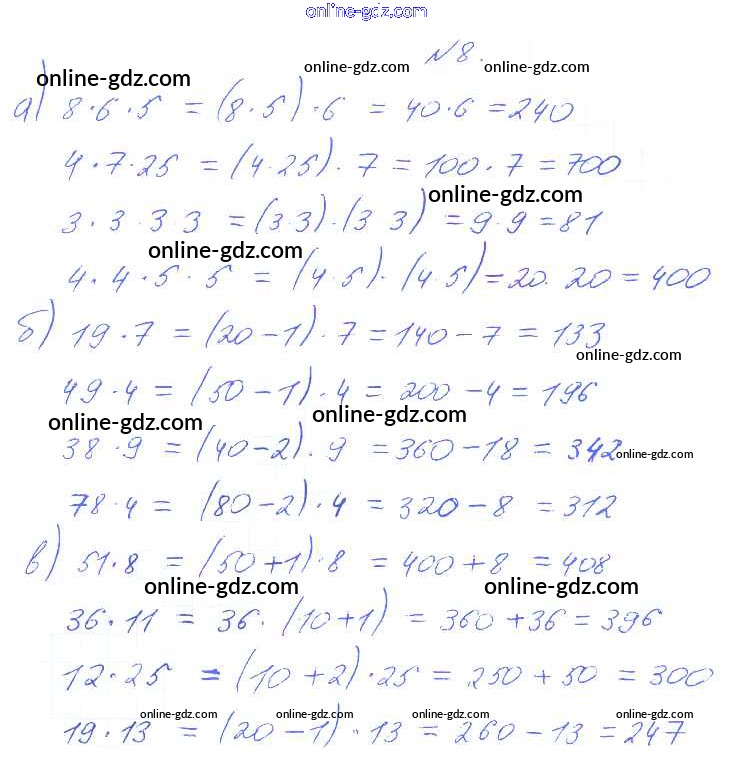 online-gdz.com
online-gdz.com online-gdz.com №8. online-gdz.com
а) 8·6·5 = (8·5)·6 = 40·6 = 240
4·7·25 = (4·25)·7 = 100·7 = 700
online-gdz.com
3·3·3·3 = (3·3)·(3·3) = 9·9 = 81
online-gdz.com
4·4·5·5 = (4·5)·(4·5) = 20·20 = 400
б) 19·7 = (20-1)·7 = 140-7 = 133
online-gdz.com
49·4 = (50-1)·4 = 200-4 = 196
online-gdz.com online-gdz.com
38·9 = (40-2)·9 = 360-18 = 342 online-gdz.com
78·4 = (80-2)·4 = 320-8 = 312
в) 51·8 = (50+1)·8 = 400+8 = 408
online-gdz.com online-gdz.com
36·11 = 36·(10+1) = 360+36 = 396
12·25 = (10+2)·25 = 250+50 = 300
online-gdz.com online-gdz.com online-gdz.com online-gdz.com
19·13 = (20-1)·13 = 260-13 = 247